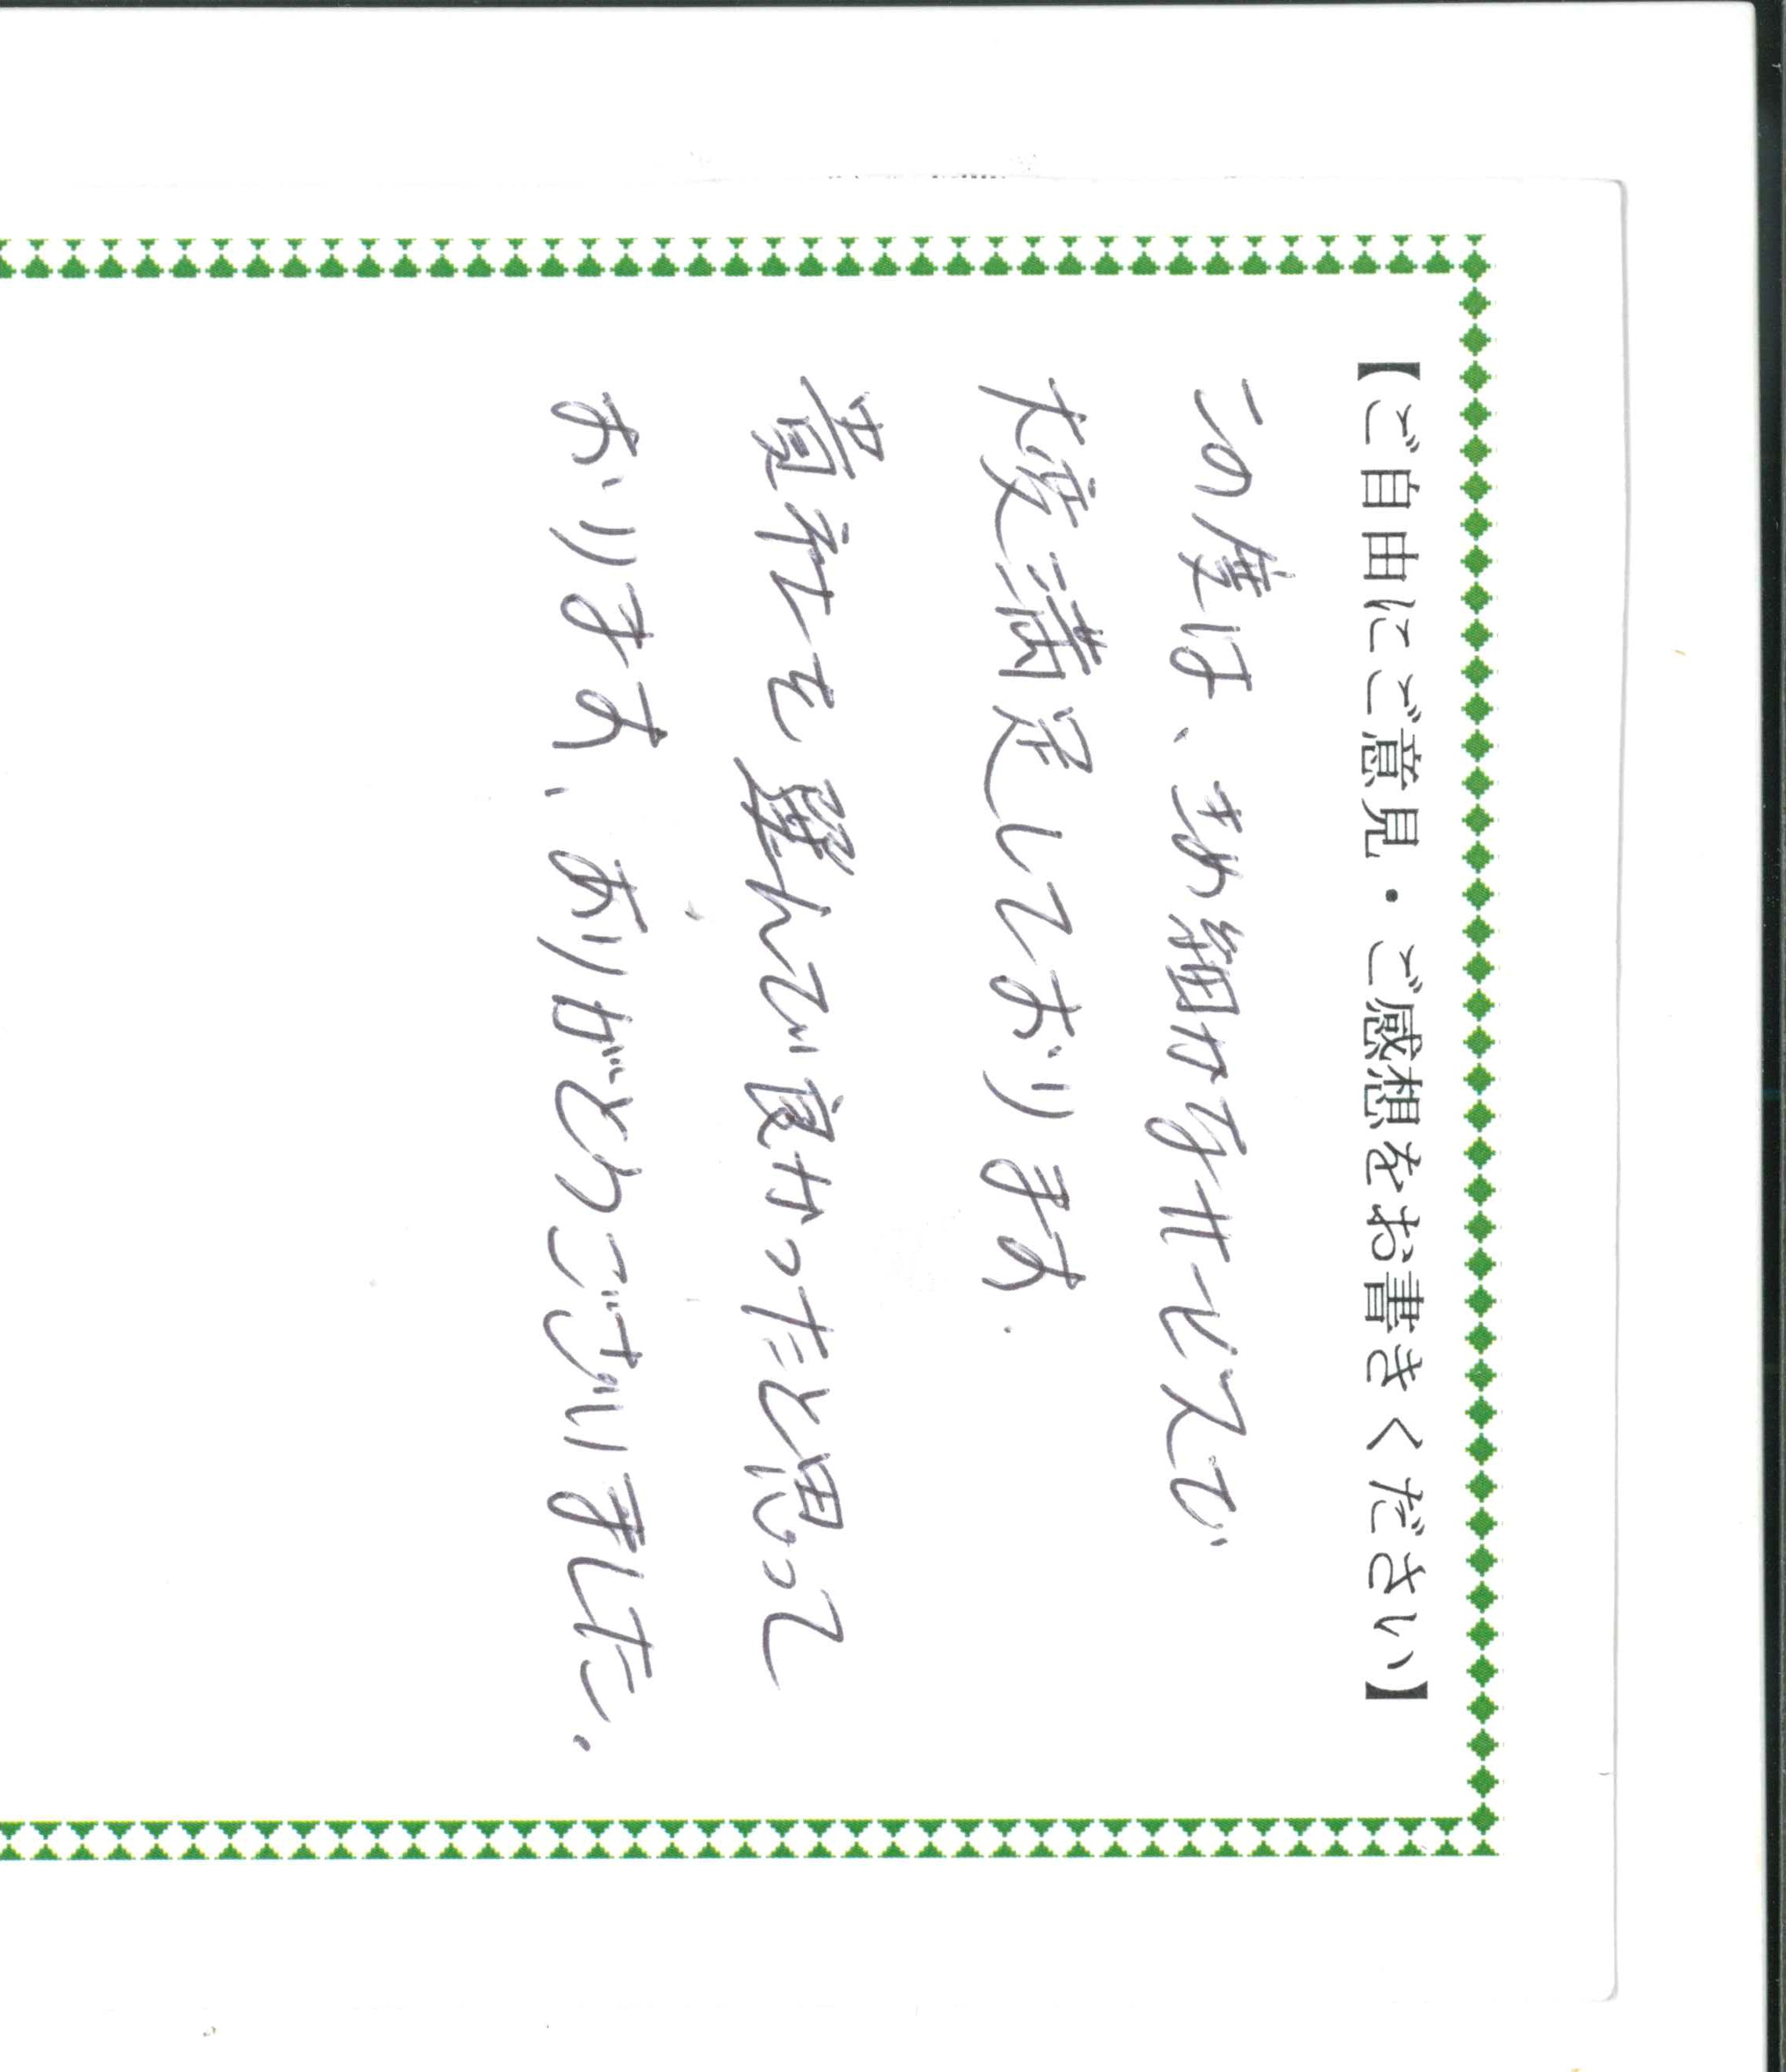 【ご自由にご意見・ご感想をお書きください】
この度は、きめ細かなサービスで
大変満足しております.
貴社を選んで良かったと思って
おります、ありがとうございました.